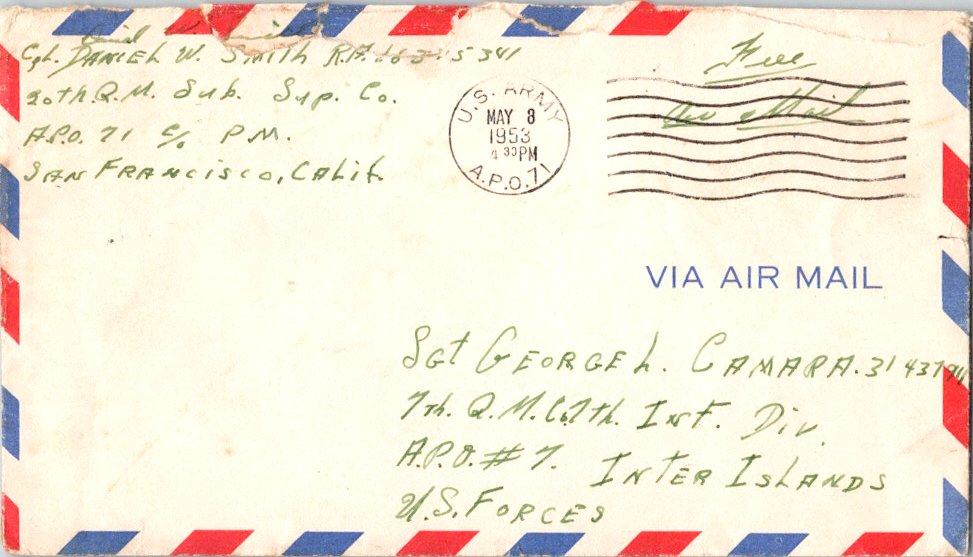 Cpl. DANIEL W. Smith R.A.
20th. Q.M. Sub. Sup. Co.
A.P.O. 71 c/o P.M.
SAN FRANCISCO, CALIF.
U.S. ARMY
MAY 8
1953
4 30 PM
A.P.O. 71
Free
Air Mail
VIA AIR MAIL
Sgt GEORGE L. CAMARA.
7th. Q.M. Co. 7th. INF. Div.
A.P.O. # 7. INTER ISLANDS
U.S. FORCES